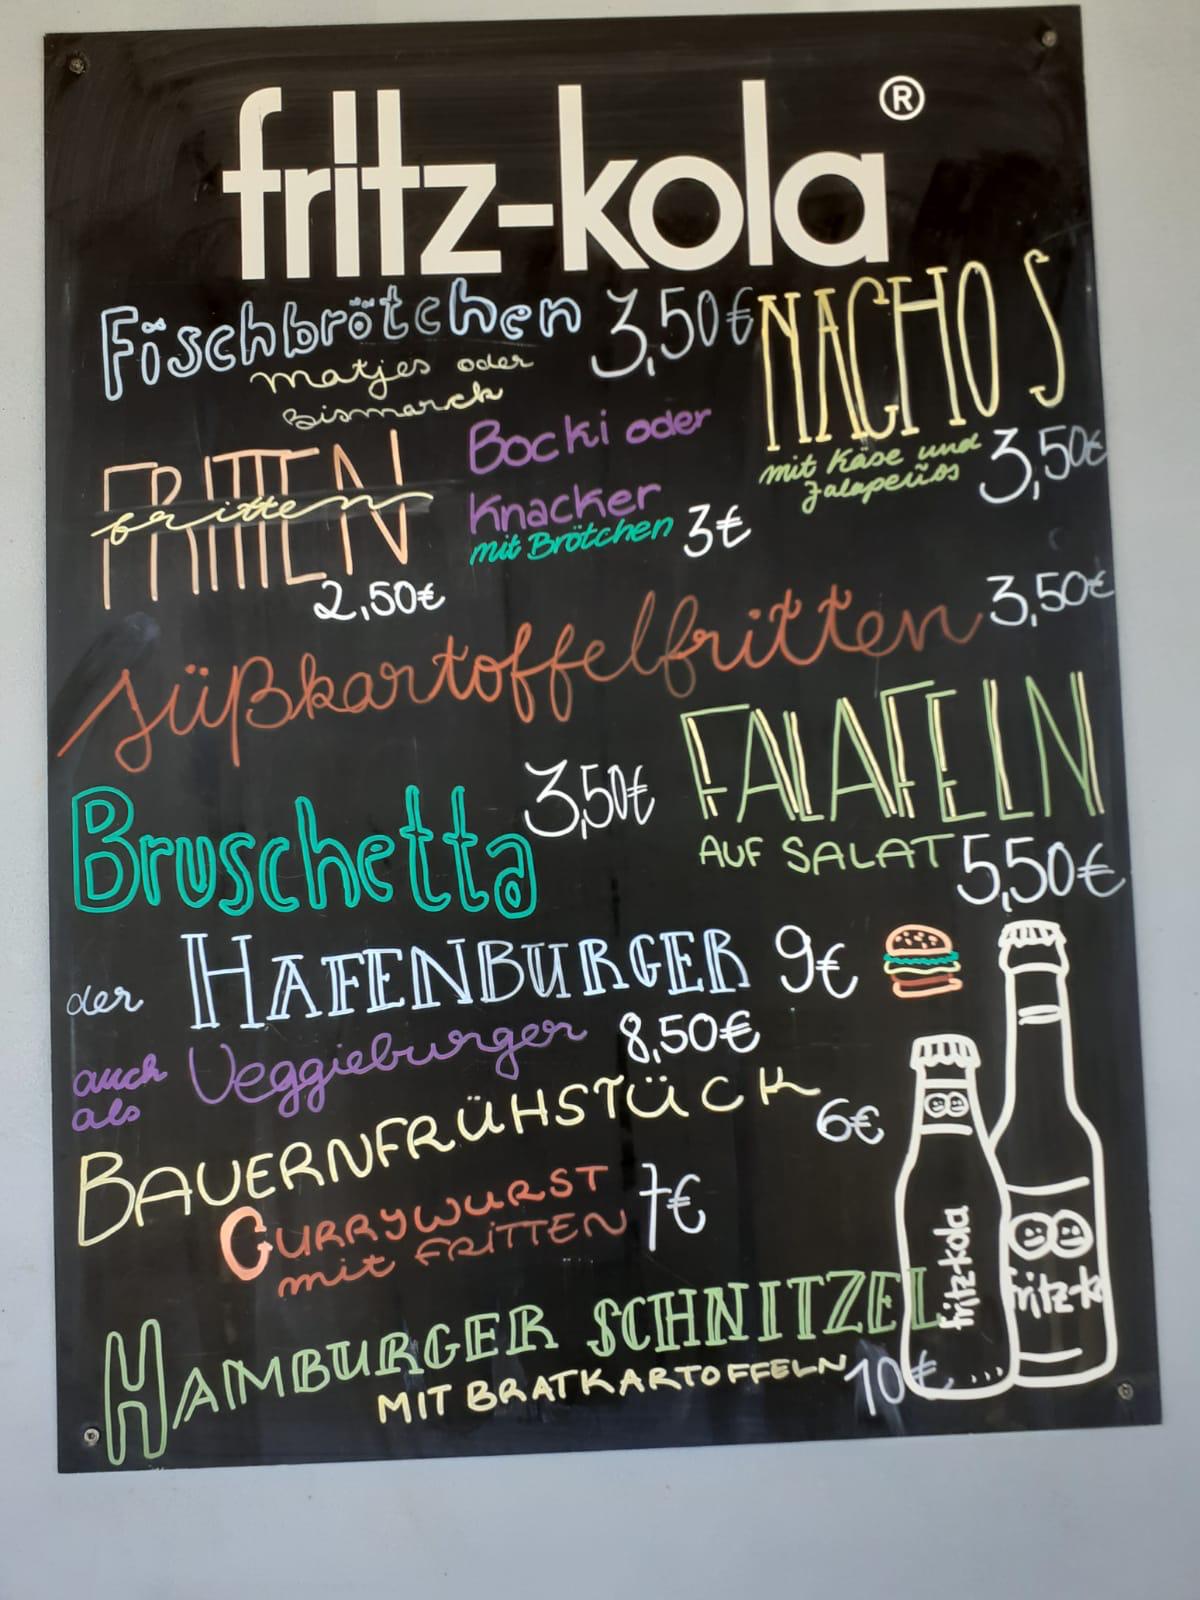 fritz-kola®
Fischbrötchen 3,50€
matjes oder
Bismarck
NACHOS
mit Käse und
Jalapeños 3,50€
FRITTEN
fritten
2,50€
Bocki oder
Knacker
mit Brötchen 3€
süßkartoffelfritten 3,50€
Bruschetta 3,50€
FALAFELN
AUF SALAT 5,50€
der HAFENBURGER 9€
auch
als Veggieburger 8,50€
BAUERNFRÜHSTÜCK 6€
CURRYWURST
mit FRITTEN 7€
HAMBURGER SCHNITZEL
MIT BRATKARTOFFELN 10€
fritz-kola
fritz-k